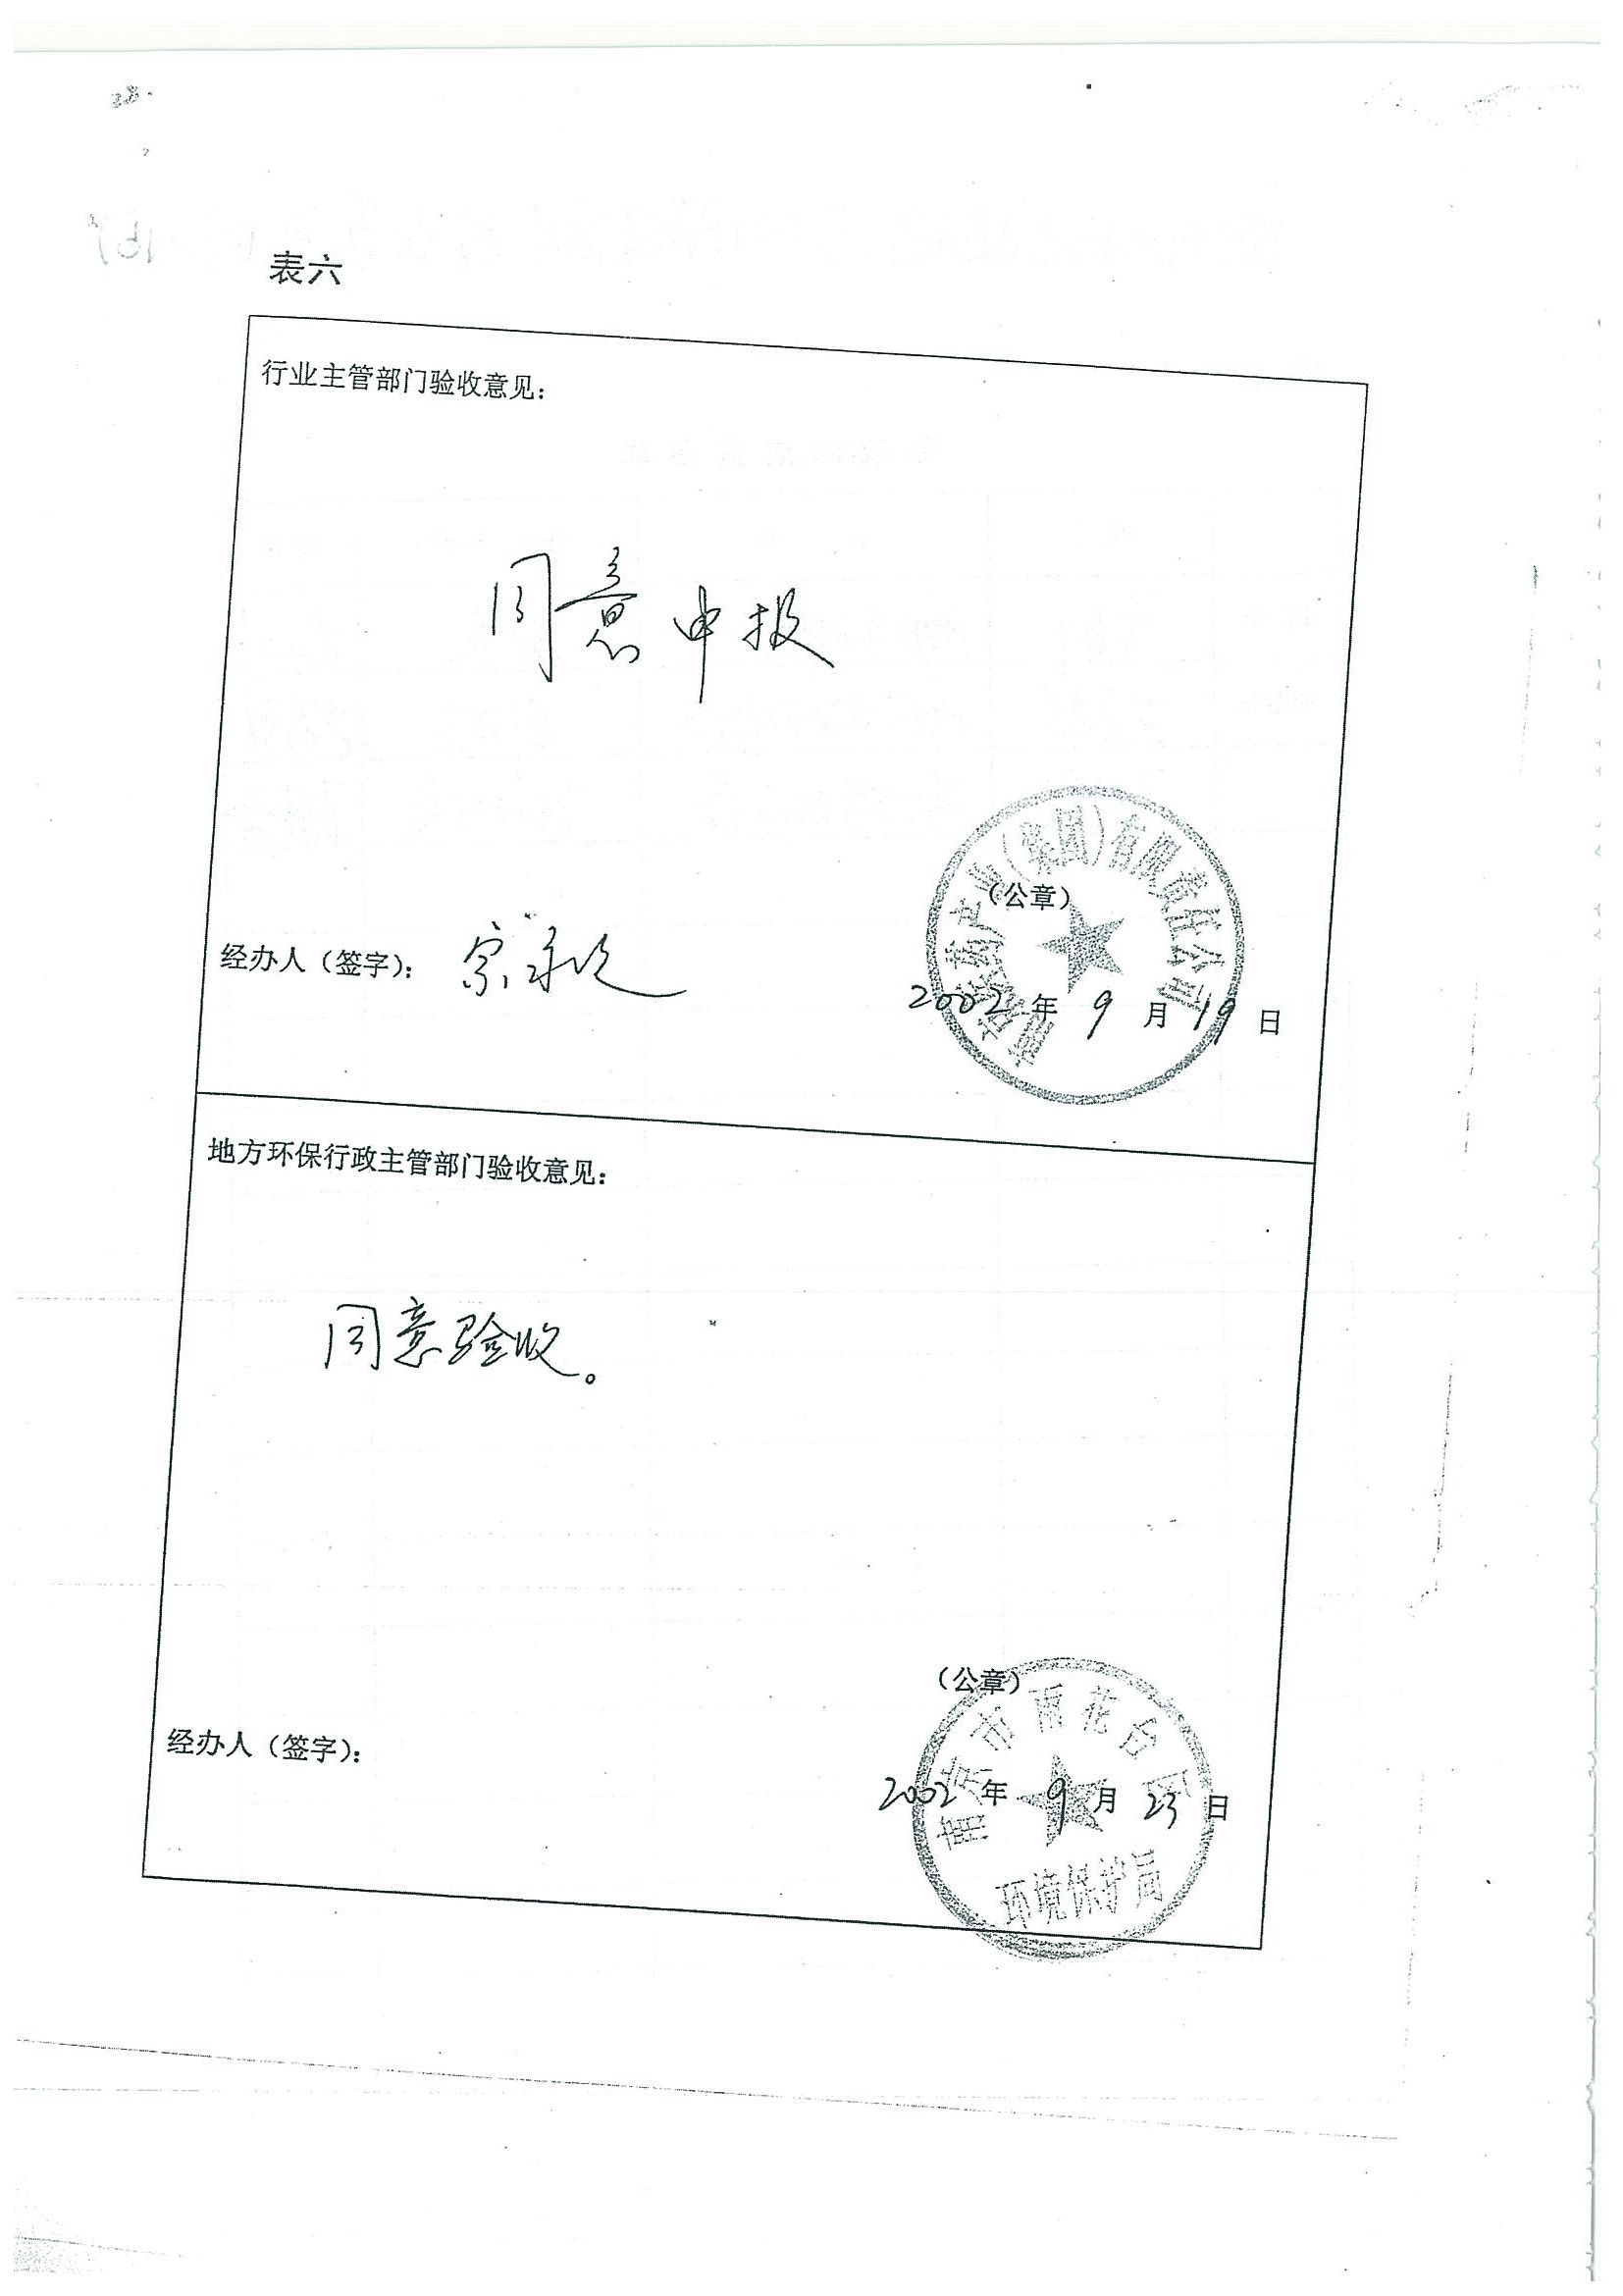 表六
行业主管部门验收意见：
同意申报
（公章）
经办人（签字）： 宗永
2002 年 9 月 19 日
（集团）有限责任公司
地方环保行政主管部门验收意见：
同意验收。
（公章）
经办人（签字）：
2002 年 9 月 23 日
南京市雨花台区
环境保护局